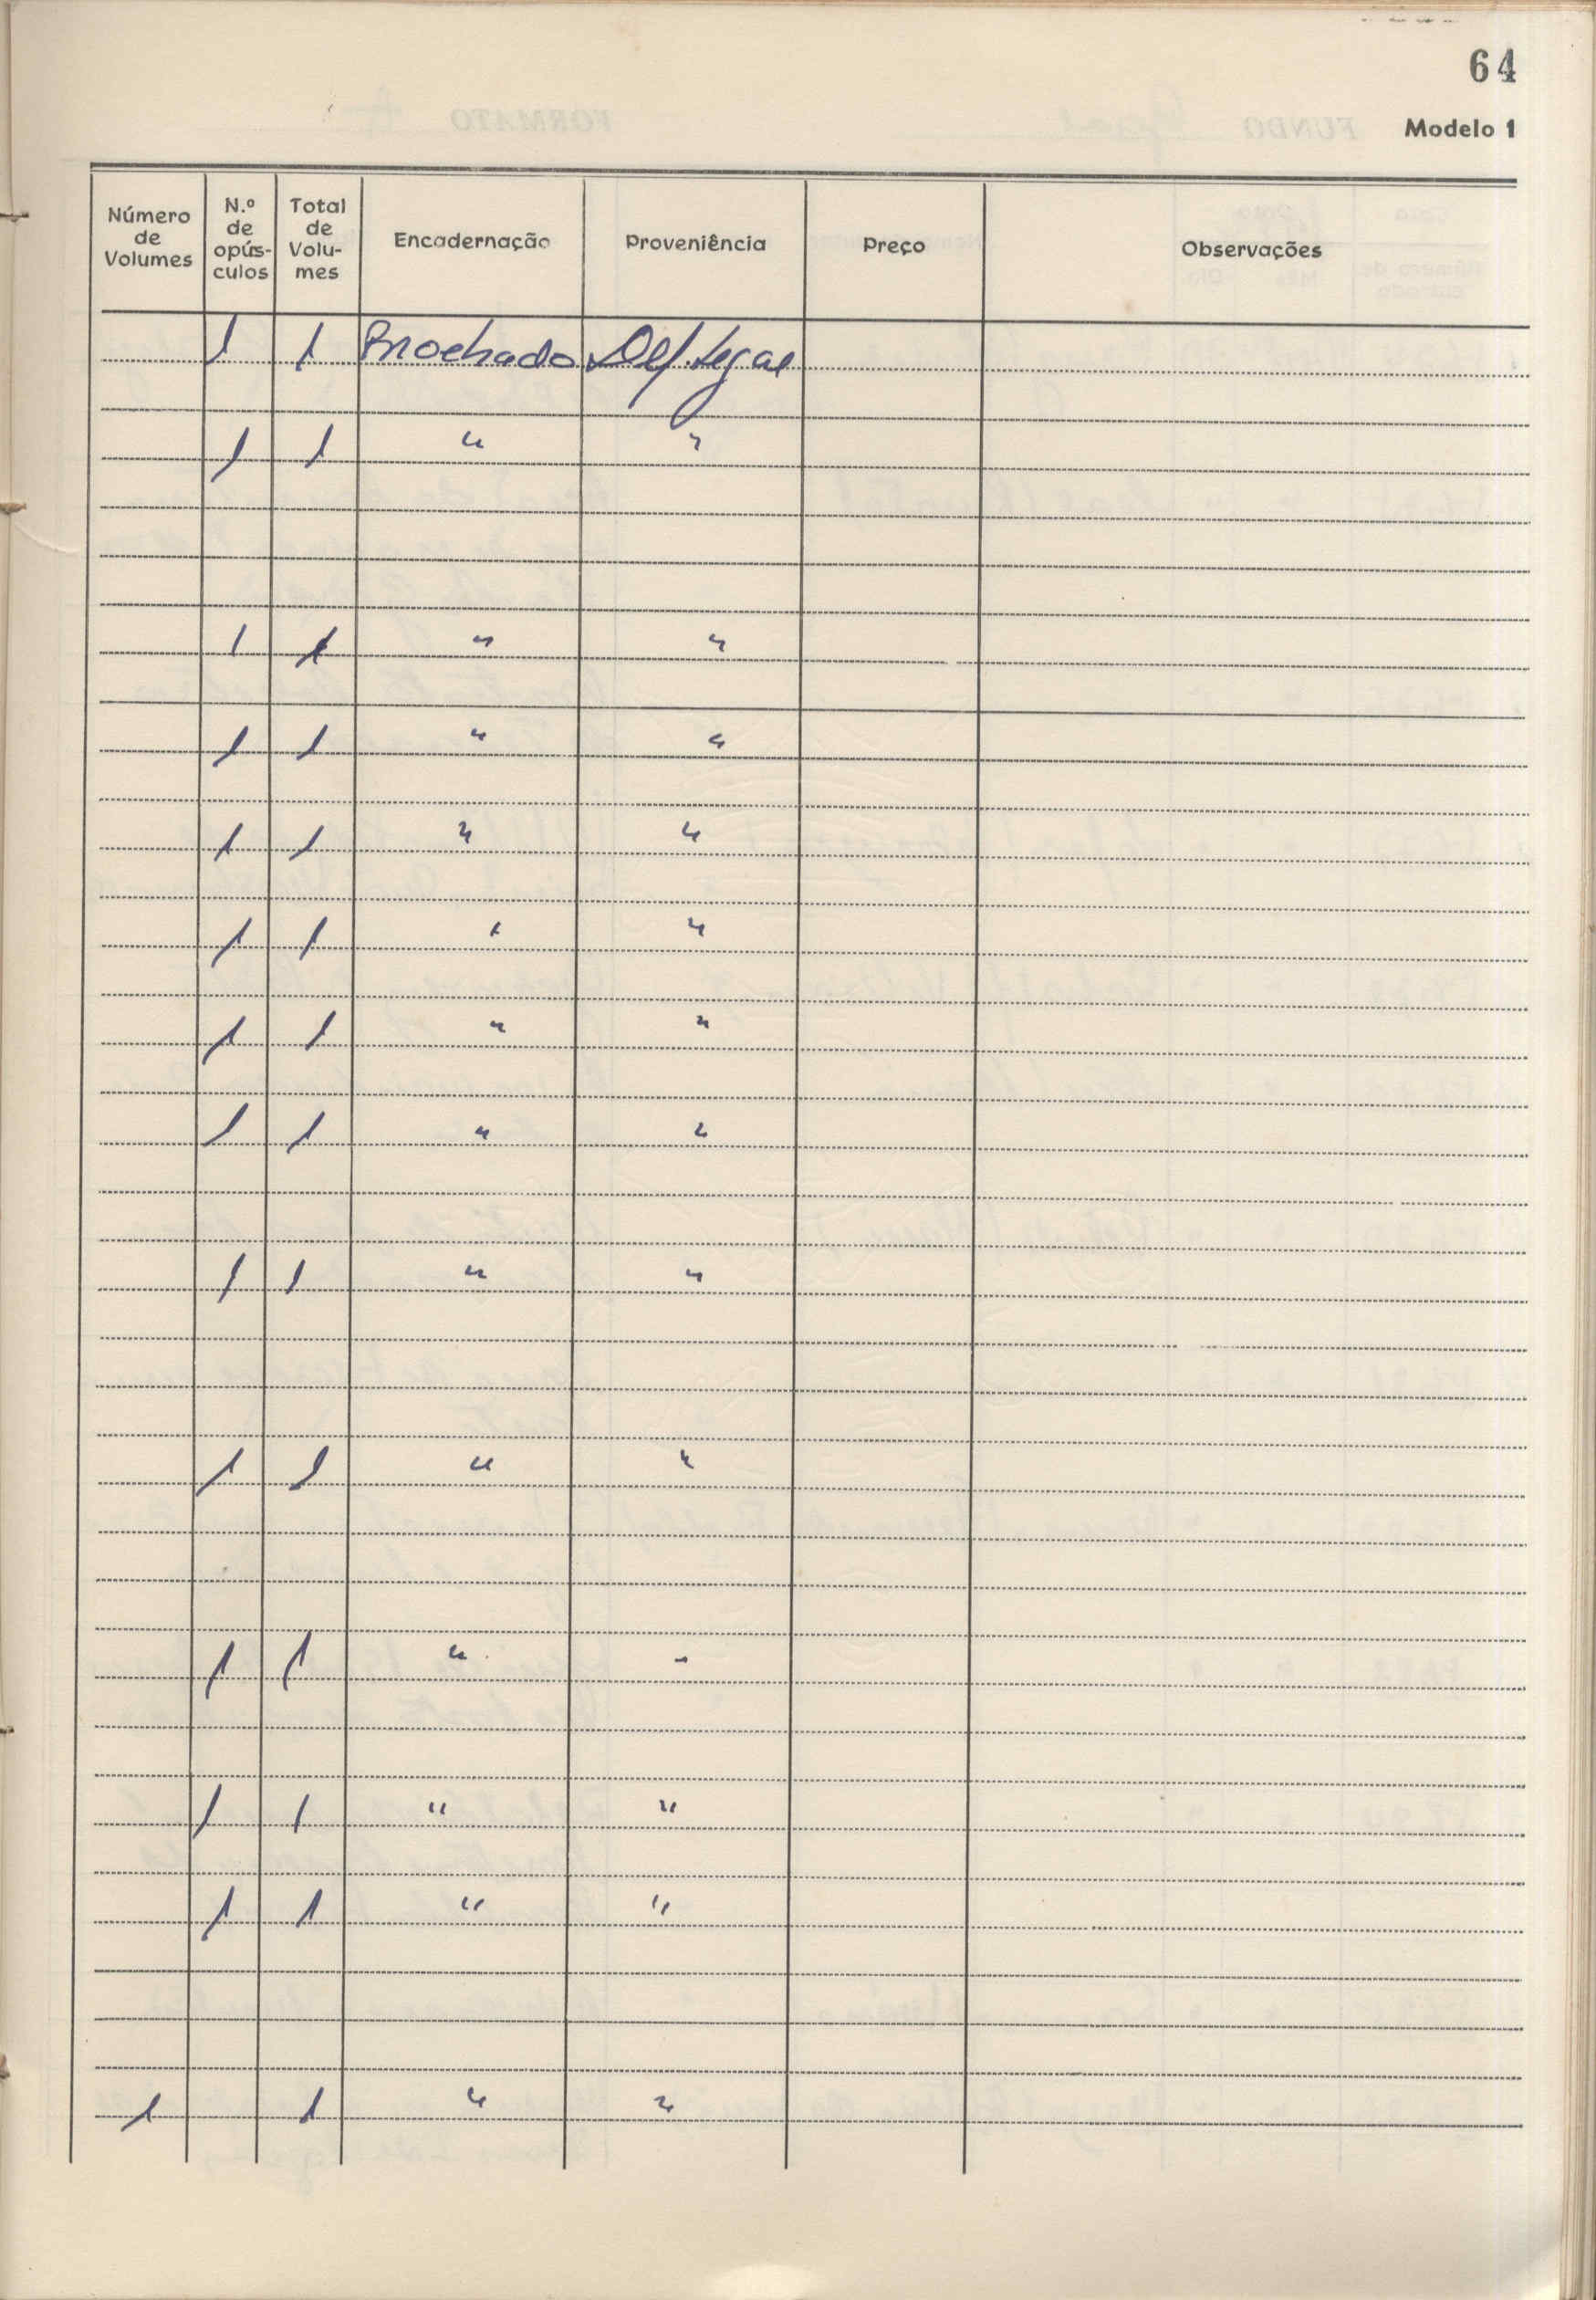 64
Modelo 1
Número de Volumes | N.º de opús-culos | Total de Volu-mes | Encadernação | Proveniência | Preço | Observações
1 1 Brochado Dep. Legal
1 1 " "
1 1 " "
1 1 " "
1 1 " "
1 1 " "
1 1 " "
1 1 " "
1 1 " "
1 1 " "
1 1 " "
1 1 " "
1 1 " "
1 1 " "